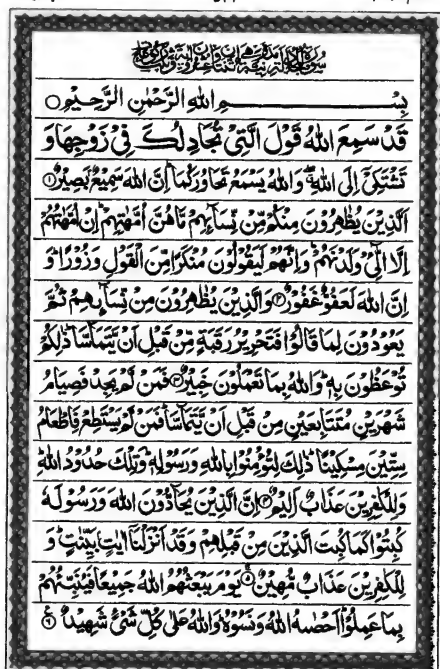 بِسْــــــمِ اللهِ الرَّحْمٰنِ الرَّحِيْمِ ○
قَدْ سَمِعَ اللهُ قَوْلَ الَّتِيْ تُجَادِلُكَ فِيْ زَوْجِهَا وَ
تَشْتَكِيْٓ اِلَى اللهِ ۖ وَاللهُ يَسْمَعُ تَحَاوُرَكُمَا ؕ اِنَّ اللهَ سَمِيْعٌۢ بَصِيْرٌ ۝۱
اَلَّذِيْنَ يُظٰهِرُوْنَ مِنْكُمْ مِّنْ نِّسَآىِٕهِمْ مَّا هُنَّ اُمَّهٰتِهِمْ ؕ اِنْ اُمَّهٰتُهُمْ
اِلَّا الّٰٓـِٔيْ وَلَدْنَهُمْ ؕ وَاِنَّهُمْ لَيَقُوْلُوْنَ مُنْكَرًا مِّنَ الْقَوْلِ وَزُوْرًا ؕ وَ
اِنَّ اللهَ لَعَفُوٌّ غَفُوْرٌ ۝۲ وَالَّذِيْنَ يُظٰهِرُوْنَ مِنْ نِّسَآىِٕهِمْ ثُمَّ
يَعُوْدُوْنَ لِمَا قَالُوْا فَتَحْرِيْرُ رَقَبَةٍ مِّنْ قَبْلِ اَنْ يَّتَمَآسَّا ؕ ذٰلِكُمْ
تُوْعَظُوْنَ بِهٖ ؕ وَاللهُ بِمَا تَعْمَلُوْنَ خَبِيْرٌ ۝۳ فَمَنْ لَّمْ يَجِدْ فَصِيَامُ
شَهْرَيْنِ مُتَتَابِعَيْنِ مِنْ قَبْلِ اَنْ يَّتَمَآسَّا ۚ فَمَنْ لَّمْ يَسْتَطِعْ فَاِطْعَامُ
سِتِّيْنَ مِسْكِيْنًا ؕ ذٰلِكَ لِتُؤْمِنُوْا بِاللهِ وَرَسُوْلِهٖ ؕ وَتِلْكَ حُدُوْدُ اللهِ ؕ
وَلِلْكٰفِرِيْنَ عَذَابٌ اَلِيْمٌ ۝۴ اِنَّ الَّذِيْنَ يُحَآدُّوْنَ اللهَ وَرَسُوْلَهٗ
كُبِتُوْا كَمَا كُبِتَ الَّذِيْنَ مِنْ قَبْلِهِمْ وَقَدْ اَنْزَلْنَآ اٰيٰتٍۭ بَيِّنٰتٍ ؕ وَ
لِلْكٰفِرِيْنَ عَذَابٌ مُّهِيْنٌ ۝۵ يَوْمَ يَبْعَثُهُمُ اللهُ جَمِيْعًا فَيُنَبِّئُهُمْ
بِمَا عَمِلُوْا ؕ اَحْصٰىهُ اللهُ وَنَسُوْهُ ؕ وَاللهُ عَلٰى كُلِّ شَيْءٍ شَهِيْدٌ ۝۶ ع